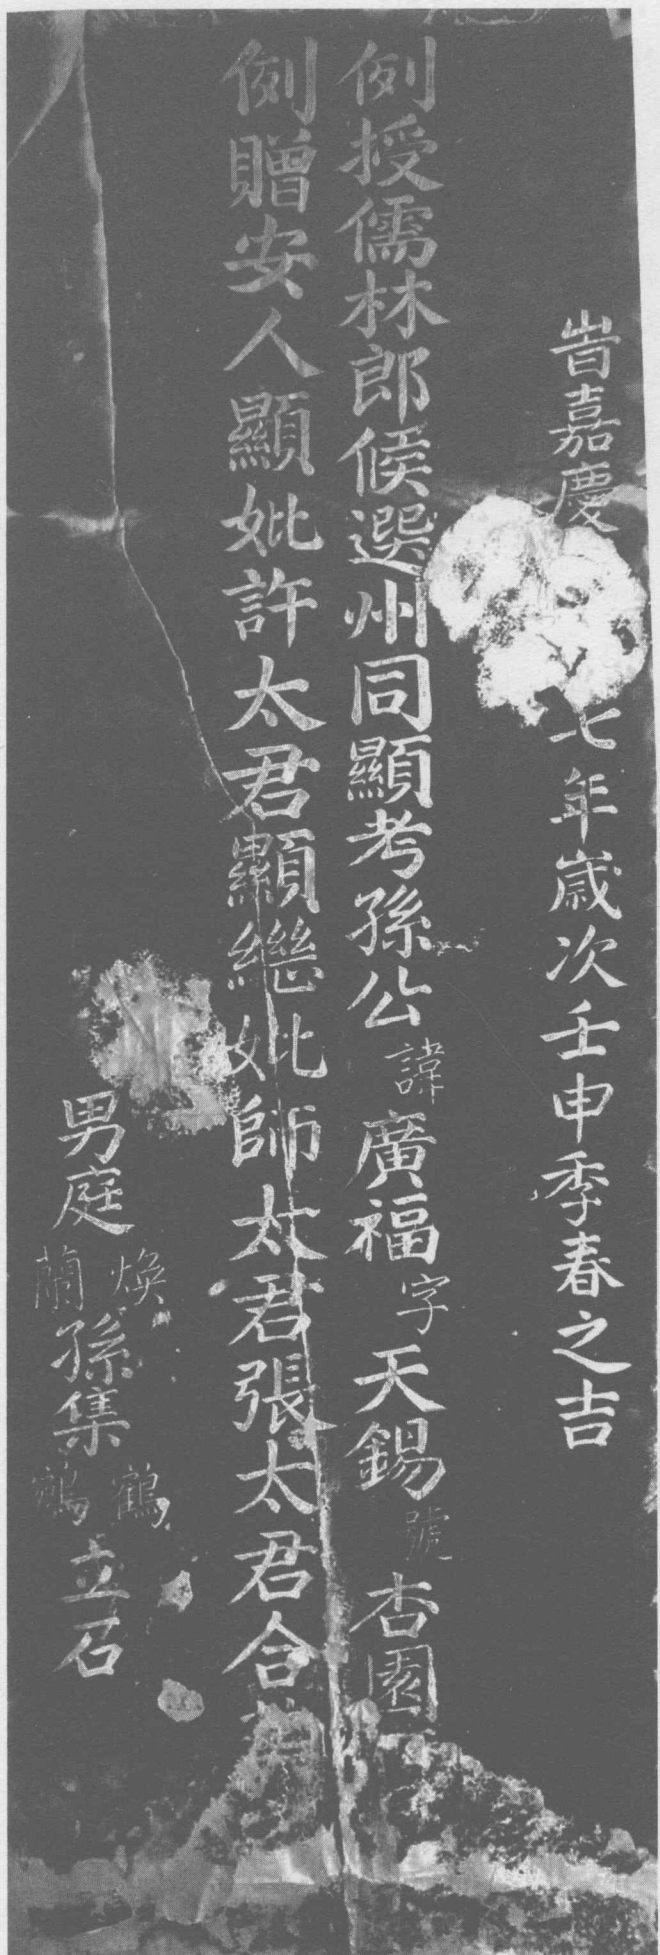 旹嘉慶七年歲次壬申季春之吉
例授儒林郎候選州同顯考孫公諱廣福字天錫號杏園
例贈安人顯妣許太君顯繼妣師太君張太君合
男庭煥蘭孫集鶴鷫立石